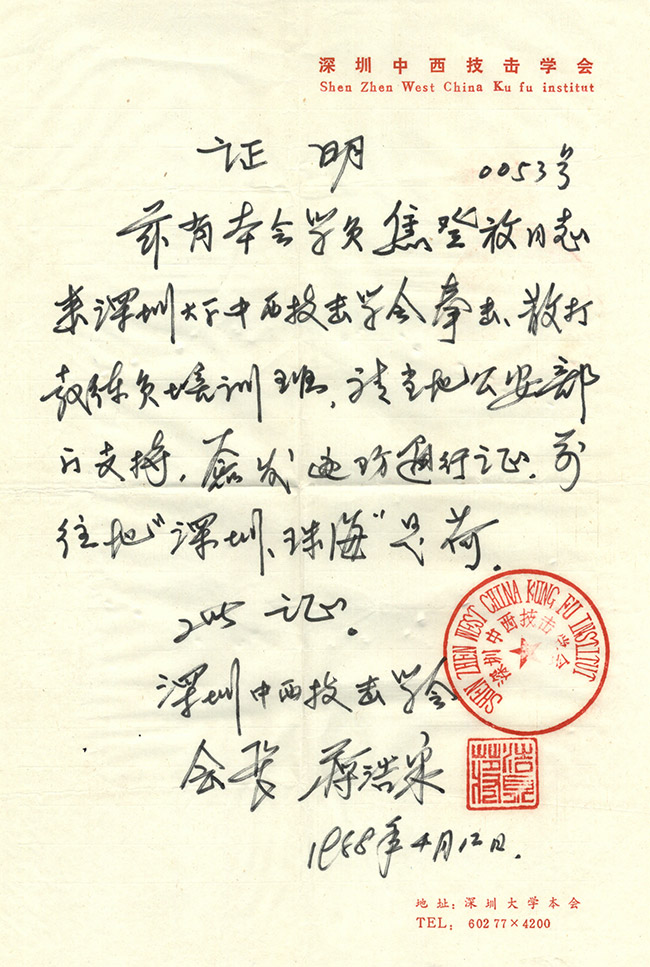 深圳中西技击学会
Shen Zhen West China Ku fu institut
证 明
0053号
兹有本会学员焦登放同志
来深圳大学中西技击学会拳击、散打
教练员培训班，请当地公安部
门支持，签发边防通行证，前
往地“深圳、珠海”是荷。
此证。
深圳中西技击学会
SHEN ZHEN WEST CHINA KUNG FU INSTITUT
深圳中西技击学会
会长 蒋浩泉
1988年4月12日.
地址：深圳大学本会
TEL：602 77×4200